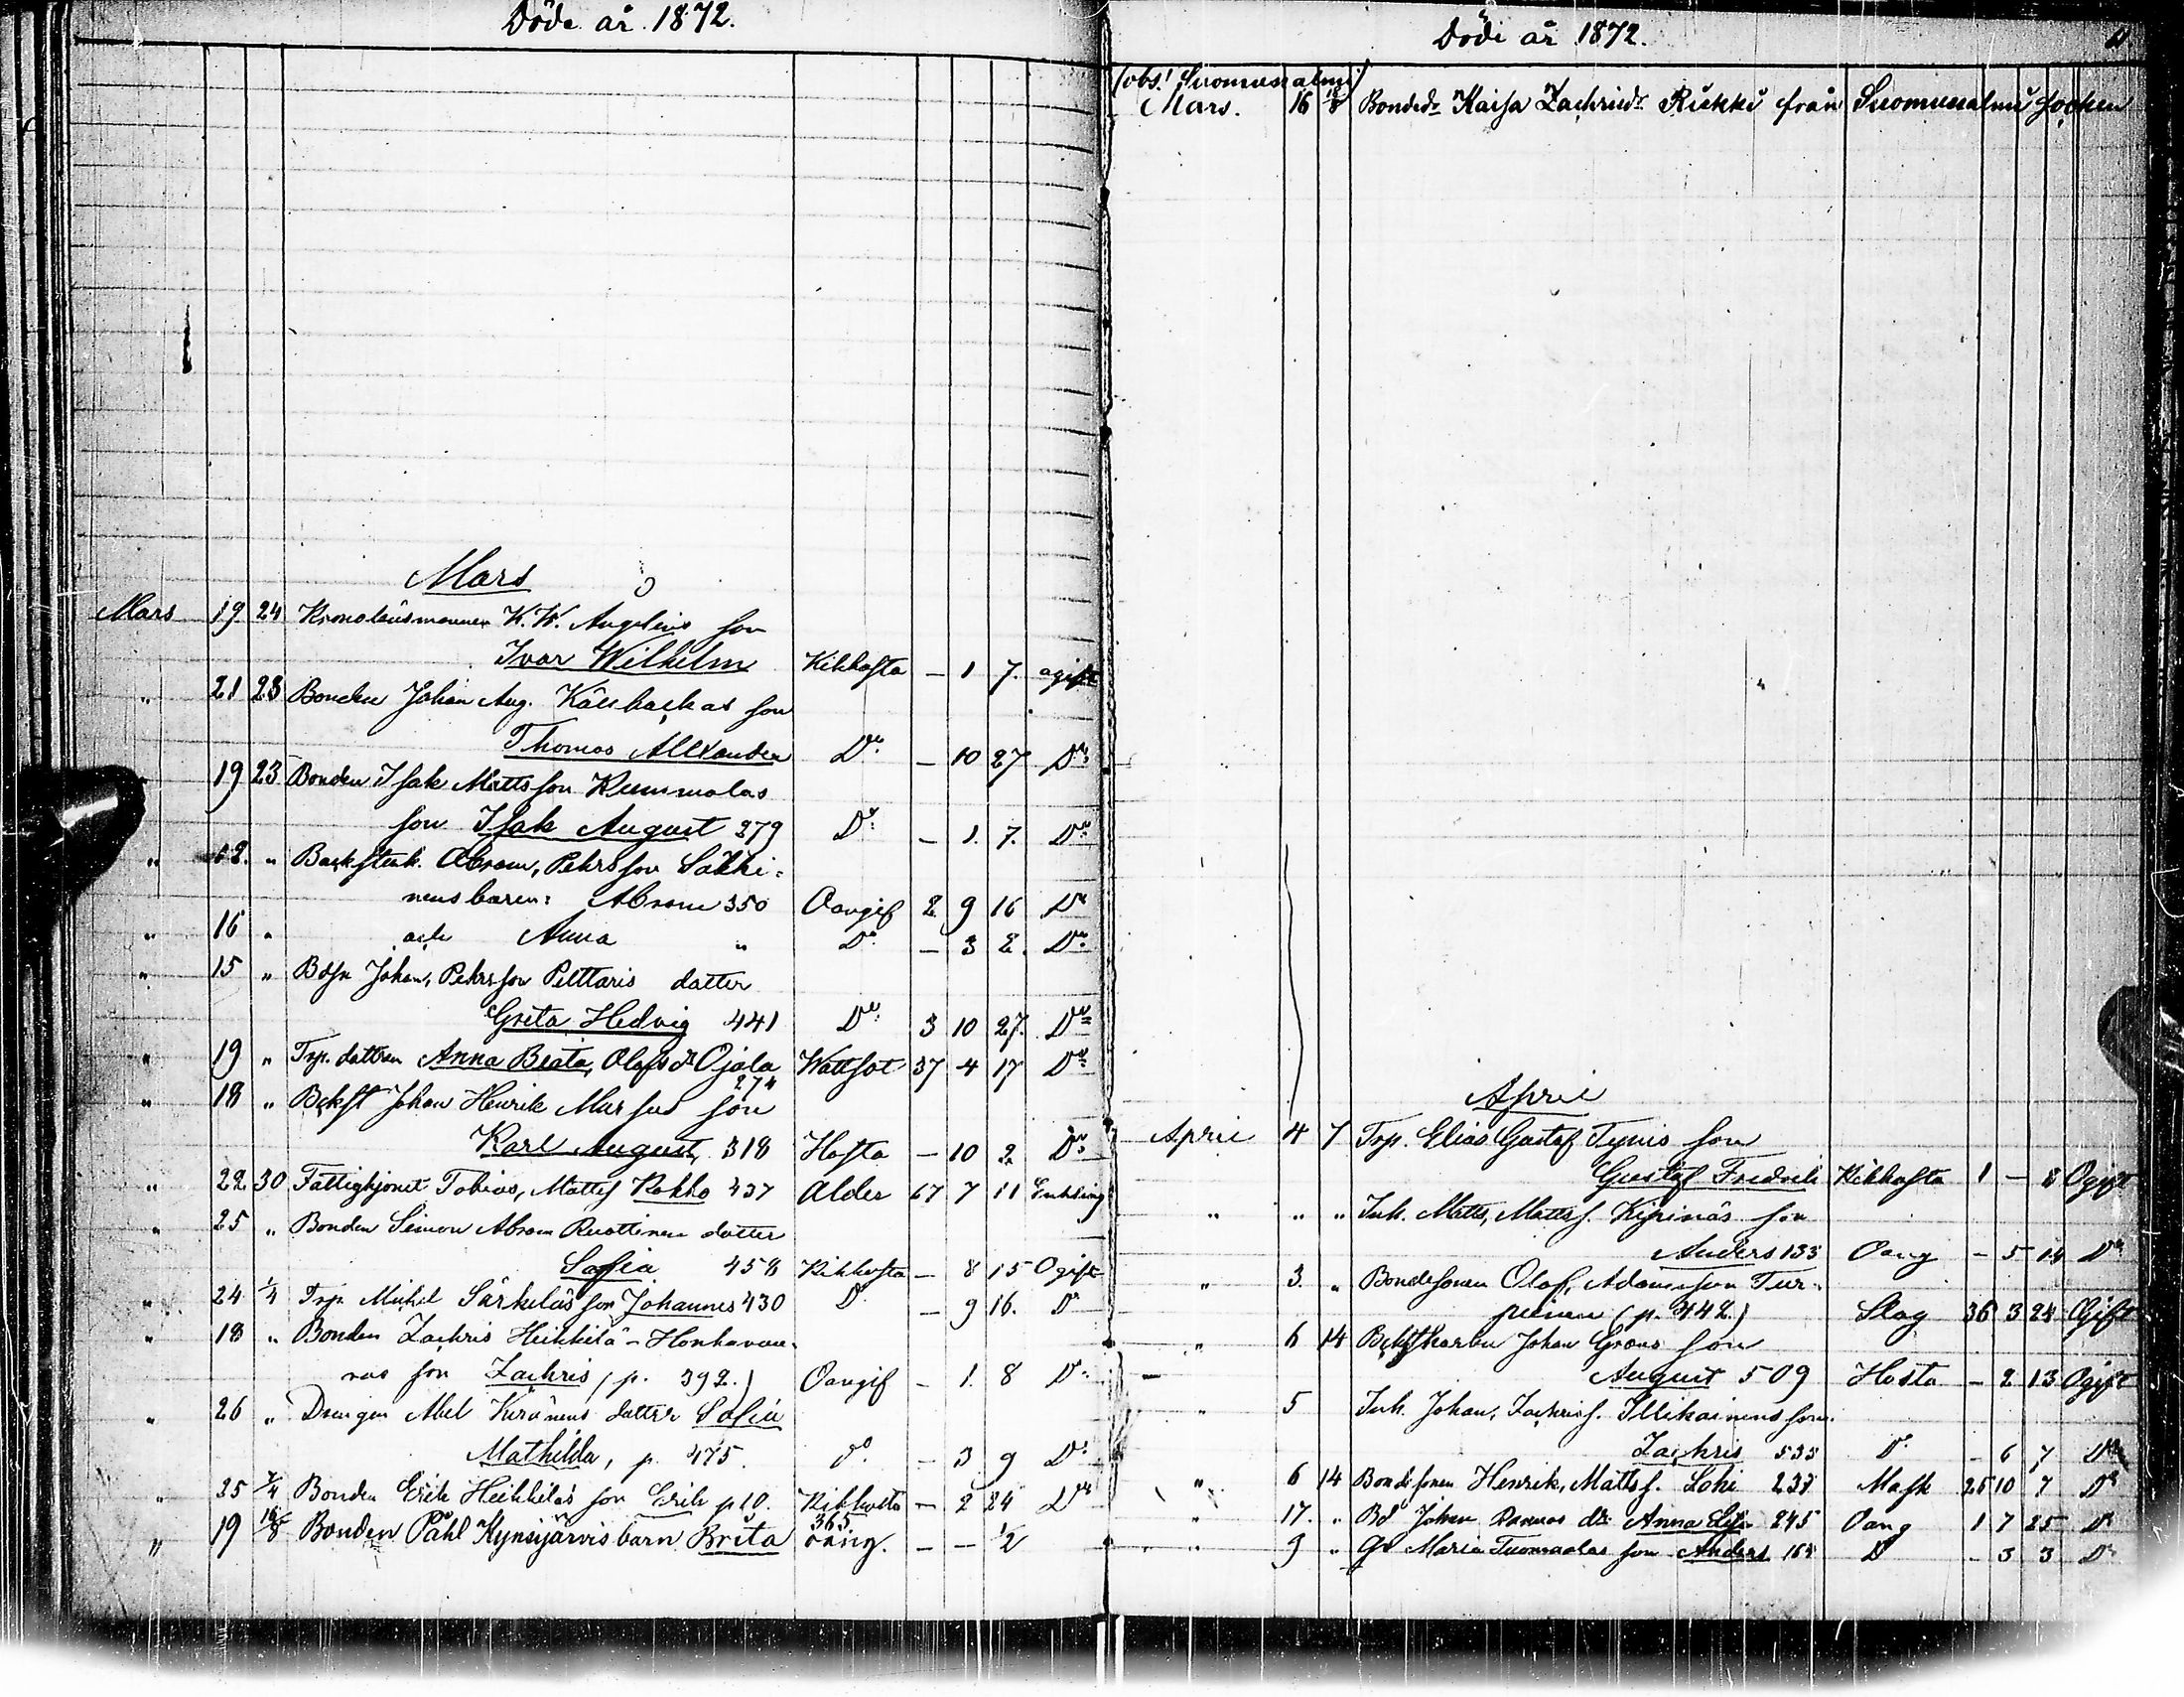 Döde år 1872.
Mars
Mars 19 24 Kronolänsmannen K. W. Angelius son
Ivar Wilhelm Kikhosta — 1 7. ogift
" 21 23 Bonden Johan Aug. son
Thomas Allexander Do — 10 27 Do
" 19 23 Bonden Isak Mattsson Kummalas
son Isak August 279 Do — 1. 7. Do
" 12. " Backstuk. Abram, Pehrsson Säkki-
nens barn: Abram 350 Oangif 2 9 16 Do
" 16 " och Anna " Do — 3 2. Do
" 15 " Bdsn Johan, Pehrsson Pelttaris dotter
Greta Hedvig 441 Do 3 10 27. Do
" 19 " Trp. dottren Anna Beata, Olofs dr Ojala Wattsot 37 4 17 Do
274
" 18 " Bckst Johan Henrik son
Karl August, 318 Hosta — 10 2 Do
" 22 30 Fattighjonet Tobias, Mattss Rokko 437 Ålder 67 7 11 Enkling
" 25 " Bonden Simon Abram Ruottinen dotter
Sofia 458 Kikhosta — 8 15 Ogift
" 24 1/4 Trp. Michel Särkeläs son Johannes 430 Do — 9 16. Do
" 18 " Bonden Zachris Heikkilä - Honkavaa-
ras son Zachris (p. 392.) Oangif — 1. 8 Do
" 26 " Drengen Abel Keränens dotter Sofia
Mathilda, p. 475. do — 3 9 Do
" 25 7/4 Bonden Erik Heikkiläs son Erik p 10. Kikhosta — 2 24 Do
365
" 19 18/8 Bonden Påhl Kynsijärvis barn Brita oang. — — 1/2
Döde år 1872.
(obs! Suomussalmi)
Mars. 16 18/8 Bondedr Kaisa Zachrisdr Riekki från Suomussalmi socken
April
April 4 7 Trp. Elias Gustaf Tynis son
Gustaf Fredrik Kikhosta 1 — 8 Ogift
" " " Inh. Matts, Mattss. Kipinäs son
Anders 133 Oang — 5 14 Do
" 3. " Bondesonen Olof, Adamsson Tur-
peinen (p. 442.) Slag 36 3 24 Gift
" 6 14 Bckstkarlen Johan Gröns son
August 509 Hosta — 2 13 Ogift
" 5 Inh. Johan, Zachriss. Illikainens son.
Zachris 535 Do — 6 7 Do
" 6 14 Bondesonen Henrik, Mattss. Loki Mask 26 10 7 Do
" 17. " Bd Johan dtr Anna 245 Oang 1 7 25 Do
" 9 " Maria Tuomaalas son Anders 164 D — 3 3 Do